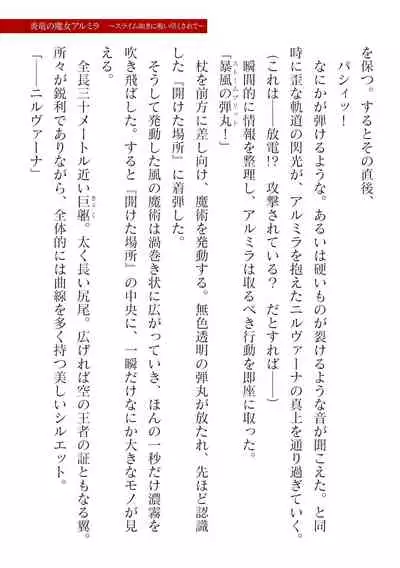 炎竜の魔女アルミラ　～スライム如きに吸い尽くされて～
を保つ。するとその直後、
パシィッ！
なにかが弾けるような。あるいは硬いものが裂けるような音が聞こえた。と同
時に歪な軌道の閃光が、アルミラを抱えたニルヴァーナの真上を通り過ぎていく。
（これは――放電!?　攻撃されている？　だとすれば――）
瞬間的に情報を整理し、アルミラは取るべき行動を即座に取った。
「暴風の弾丸！」
杖を前方に差し向け、魔術を発動する。無色透明の弾丸が放たれ、先ほど認識
した『開けた場所』に着弾した。
そうして発動した風の魔術は渦巻き状に広がっていき、ほんの一秒だけ濃霧を
吹き飛ばした。すると『開けた場所』の中央に、一瞬だけなにか大きなモノが見
える。
全長三十メートル近い巨躯。太く長い尻尾。広げれば空の王者の証ともなる翼。
所々が鋭利でありながら、全体的には曲線を多く持つ美しいシルエット。
「――ニルヴァーナ」